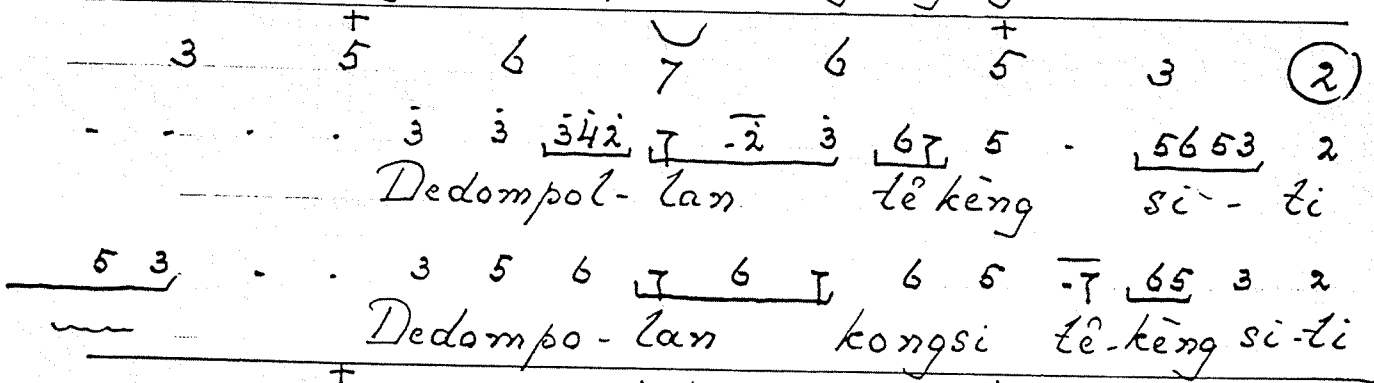 + +
3 5 6 7 6 5 3 2
- - · · 3̇ 3̇ 3̇4̇2̇ 7 -2̇ 3̇ 67 5 - 5653 2
Dedompol-lan têkèng si-ti
5 3 · · 3 5 6 7 6 7 6 5 -7 65 3 2
Dedompo-lan kongsi tê-kèng si-ti
+